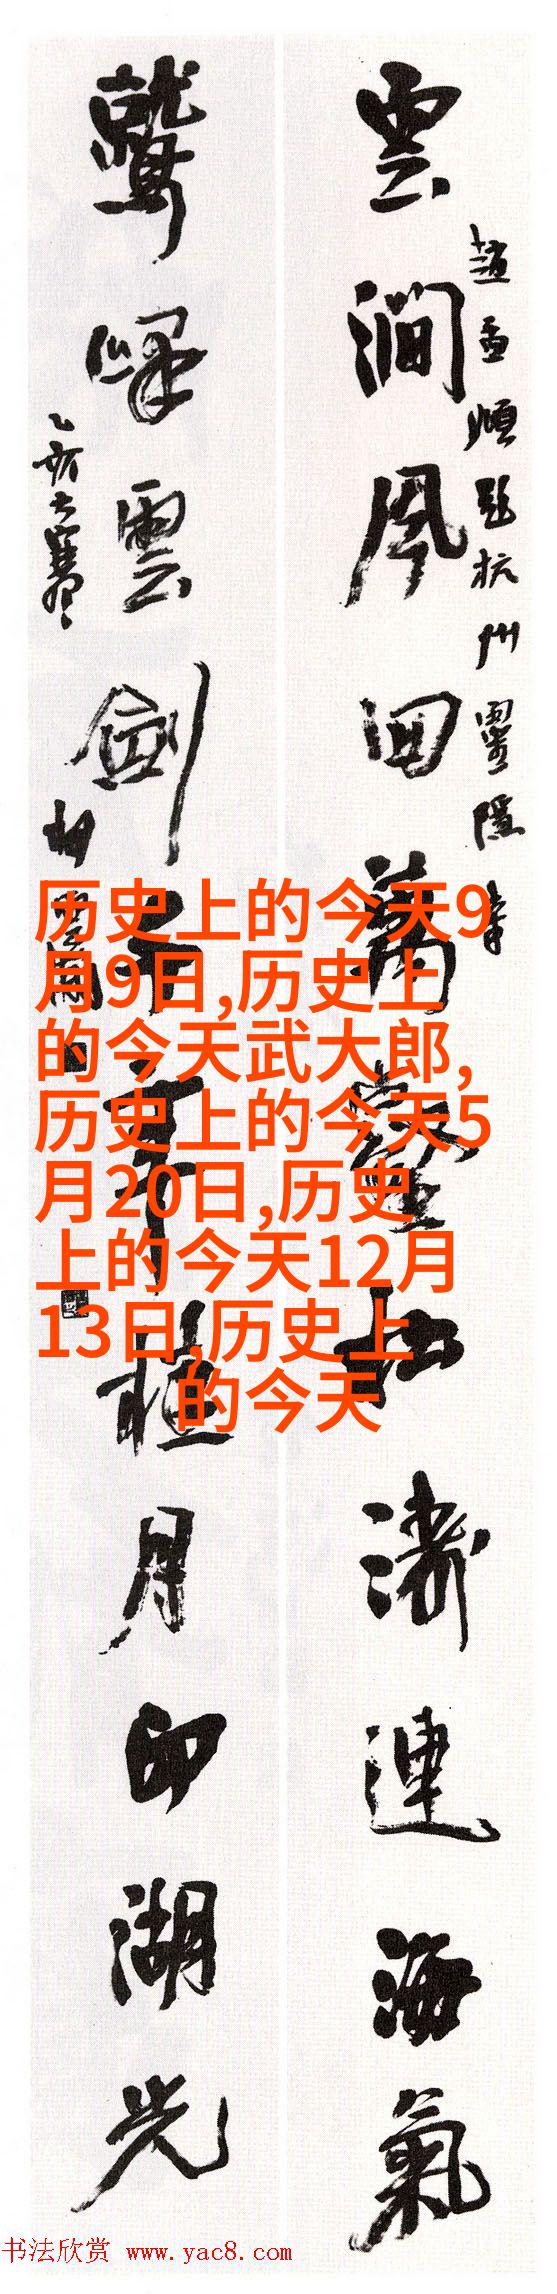 雲澗風回萬壑松濤連海氣
趙孟頫題杭州靈隱寺
鷲峰雲斂千年桂月印湖光
乙亥大寒
历史上的今天9
月9日,历史上
的今天武大郎,
历史上的今天5
月20日,历史
上的今天12月
13日,历史上
的今天
书法欣赏 www.yac8.com